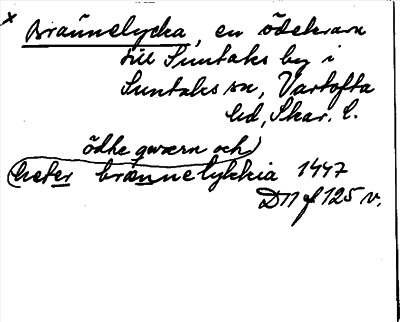 x Brännelycka, en ödekvarn
till Suntaks by i
Suntaks sn, Vartofta
hd, Skar. l.
ödhe qwærn och
heter brænnelykkia 1447
D11 f 125 v.